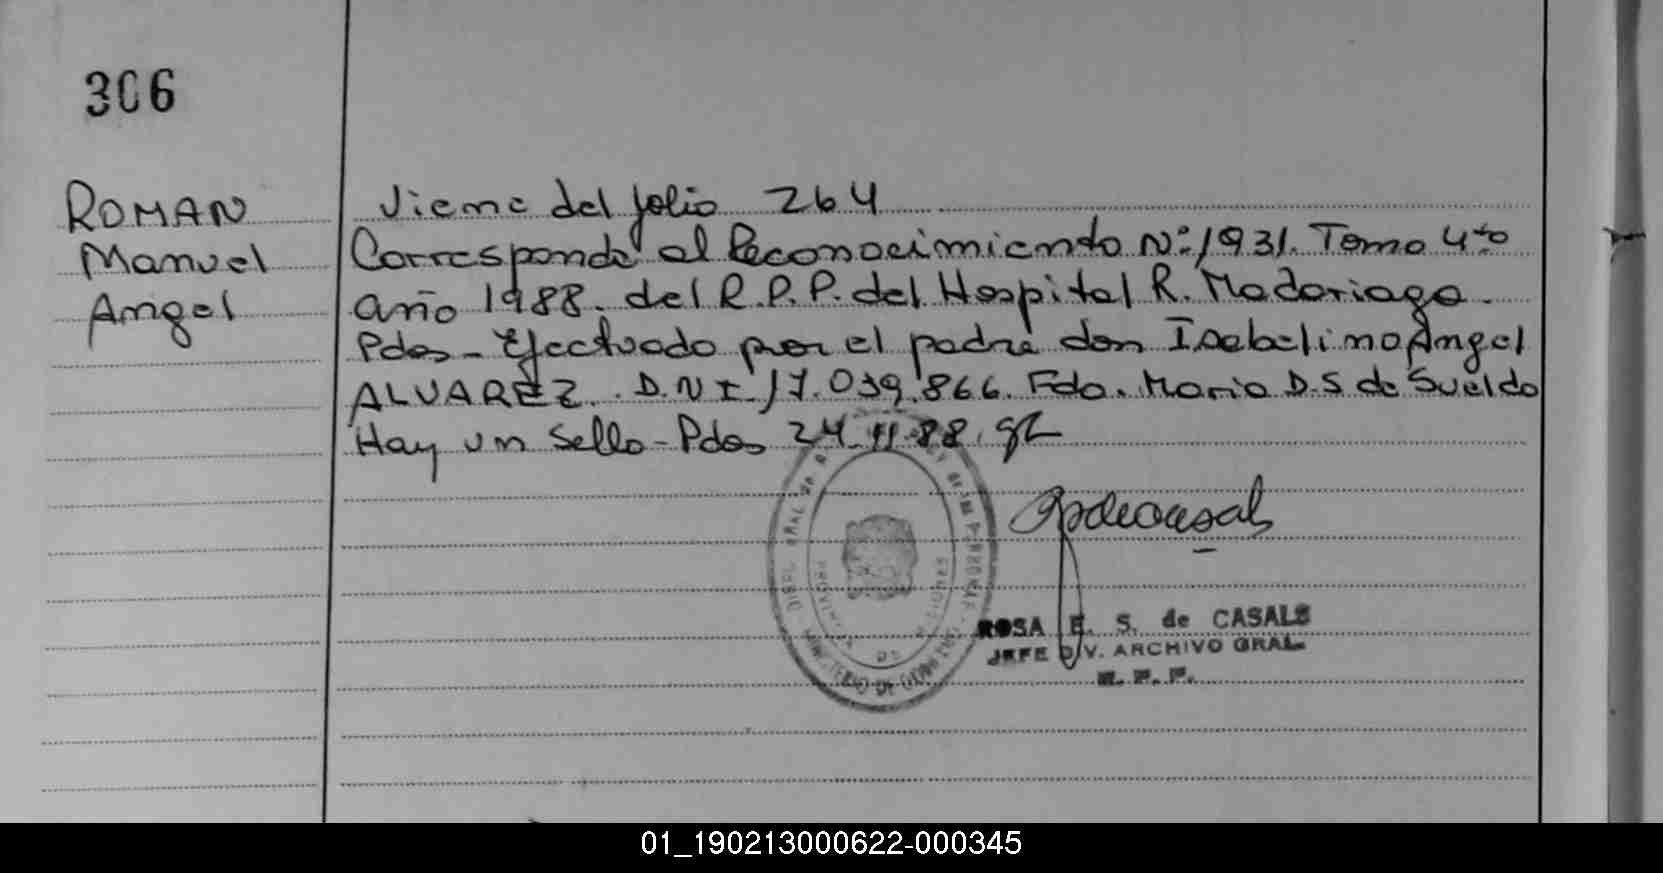 306
ROMAN
Manuel
Angel
Viene del folio 264
Corresponde al Reconocimiento Nº: 1931. Tomo 4to
año 1988. del R.P.P. del Hospital R. Madariaga.
Pdas - Efectuado por el padre don Isabelino Angel
ALVAREZ. D.N.I. 17.039.866. Fdo. Maria D.S. de Sueldo
Hay un Sello - Pdas 24.11.88.
ROSA E. S. de CASALS
JEFE DIV. ARCHIVO GRAL.
R. P. P.
01_190213000622-000345